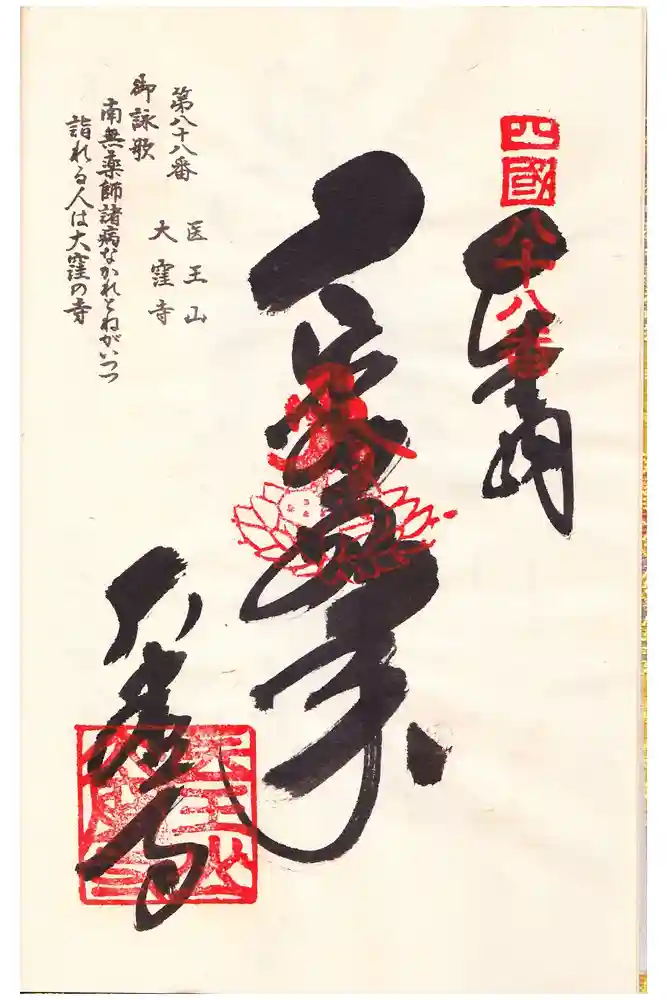 四國
八十八番
奉納
大窪寺
医王山
第八十八番
医王山
大窪寺
御詠歌
南無薬師諸病なかれとねがいつつ
詣れる人は大窪の寺